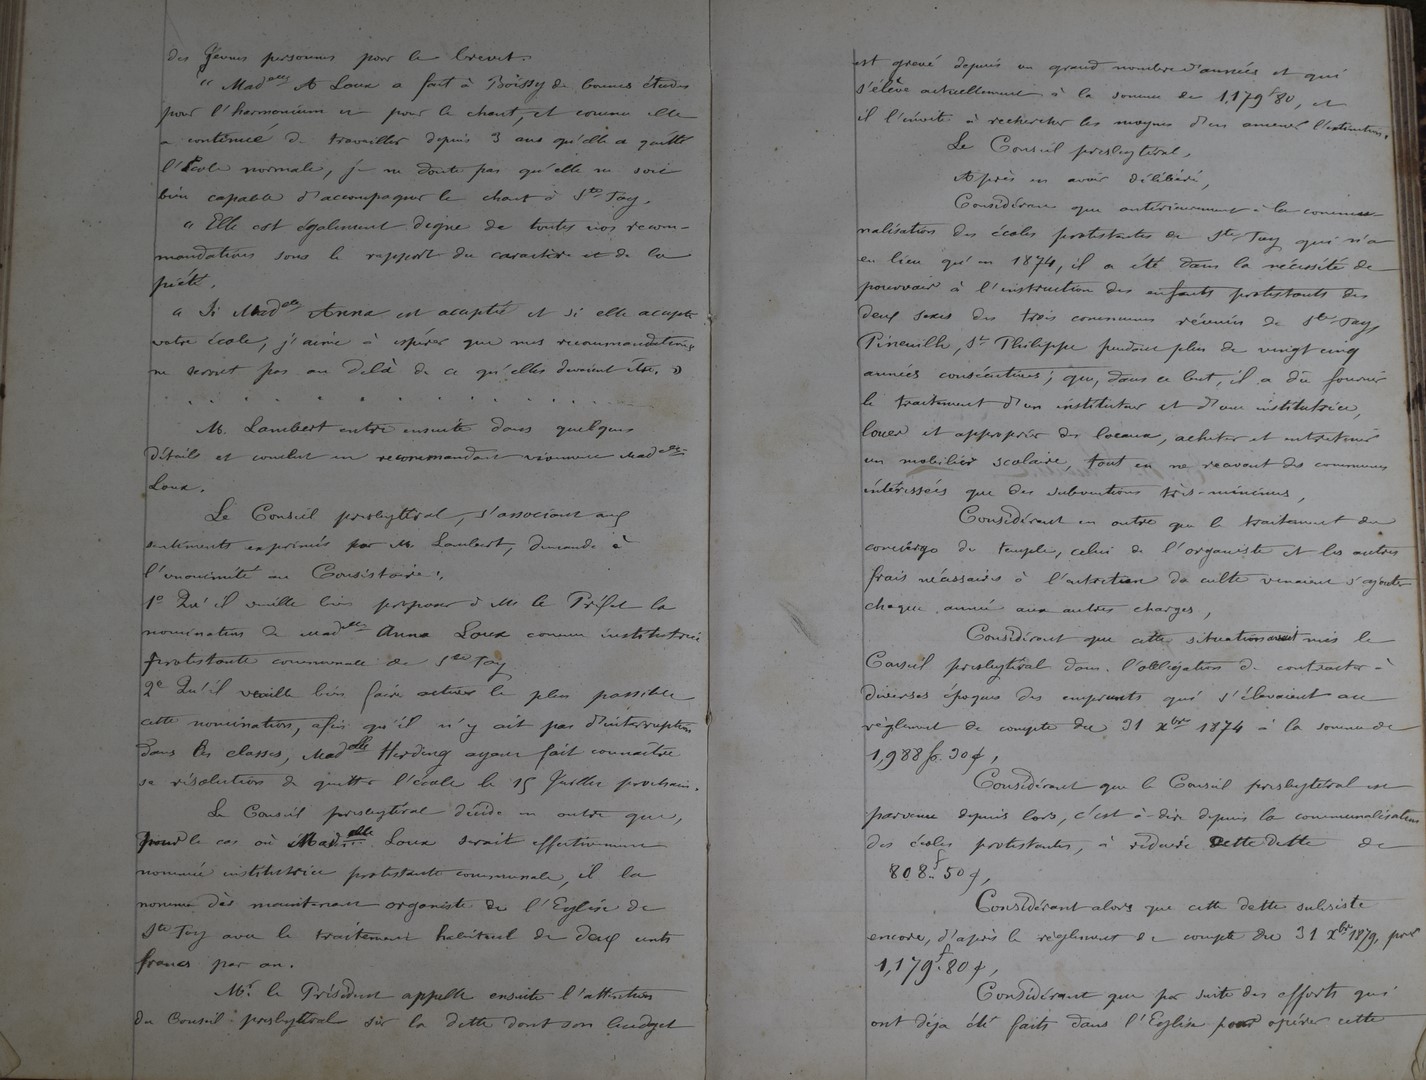 des jeunes personnes pour le brevet.
" Mad.elle A Loux a fait à Boissy de bonnes études
pour l'harmonium et pour le chant, et comme elle
a continué de travailler depuis 3 ans qu'elle a quitté
l'école normale, je ne doute pas qu'elle ne soit
bien capable d'accompagner le chant à Ste Foy.
" Elle est également digne de toutes nos recom-
mandations sous le rapport du caractère et de la
piété.
" Si Mad.elle Anna est acceptée et si elle accepte
votre école, j'aime à espérer que mes recommandations
ne seront pas au delà de ce qu'elles devaient être. »
. . . . . . . . . . . . . . . .
M. Lambert entre ensuite dans quelques
détails et conclut en recommandant vivement Mad.elle
Loux.
Le Conseil presbytéral, s'associant aux
sentiments exprimés par M. Lambert, demande à
l'unanimité au Consistoire:
1º Qu'il veuille bien proposer à M. le Préfet la
nomination de Mad.elle Anna Loux comme institutrice
protestante communale de Ste Foy
2º Qu'il veuille bien faire activer le plus possible
cette nomination, afin qu'il n'y ait pas d'interruption
dans les classes, Mad.elle Herding ayant fait connaître
sa résolution de quitter l'école le 15 Juillet prochain.
Le Conseil presbytéral décide en outre que,
pour le cas où Mad.elle Loux serait effectivement
nommée institutrice protestante communale, il la
nomme dès maintenant organiste de l'Eglise de
Ste Foy avec le traitement habituel de deux cents
francs par an.
Mr. le Président appelle ensuite l'attention
du Conseil presbytéral sur la dette dont son budget
est grevé depuis un grand nombre d'années et qui
s'élève actuellement à la somme de 1,179f 80, et
il l'invite à rechercher les moyens d'en amener l'extinction.
Le Conseil presbytéral,
Après en avoir délibéré,
Considérant que antérieurement à la commu-
nalisation des écoles protestantes de Ste Foy qui n'a
eu lieu qu'en 1874, il a été dans la nécessité de
pourvoir à l'instruction des enfants protestants des
deux sexes des trois communes réunies de Ste Foy,
Pineuilh, St Philippe pendant plus de vingt cinq
années consécutives; que, dans ce but, il a dû fournir
le traitement d'un instituteur et d'une institutrice,
louer et approprier des locaux, acheter et entretenir
un mobilier scolaire, tout en ne recevant des communes
intéressées que des subventions très-minimes,
Considérant en outre que le traitement du
concierge du temple, celui de l'organiste et les autres
frais nécessaires à l'entretien du culte venaient s'ajouter
chaque année aux autres charges,
Considérant que cette situation avait mis le
Conseil presbytéral dans l'obligation de contracter à
diverses époques des emprunts qui s'élevaient au
règlement de compte du 31 xbre 1874 à la somme de
1,988 f. 30 c,
Considérant que le Conseil presbytéral est
parvenu depuis lors, c'est-à-dire depuis la communalisation
des écoles protestantes, à réduire cette dette de
808f. 50 c,
Considérant alors que cette dette subsiste
encore, d'après le règlement de compte du 31 xbre 1879, pour
1,179f. 80 c,
Considérant que par suite des efforts qui
ont déja été faits dans l'Eglise pour opérer cette